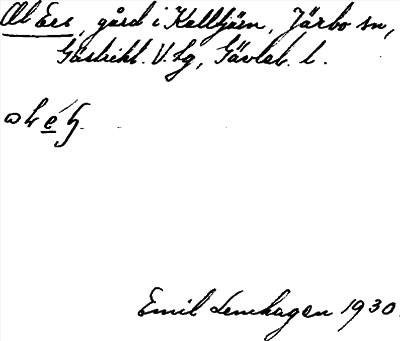 Ol Ers, gård i Kalltjärn, Järbo sn,
Gästrikl. V. tg, Gävleb. l.
Emil Lenhagen 1930.